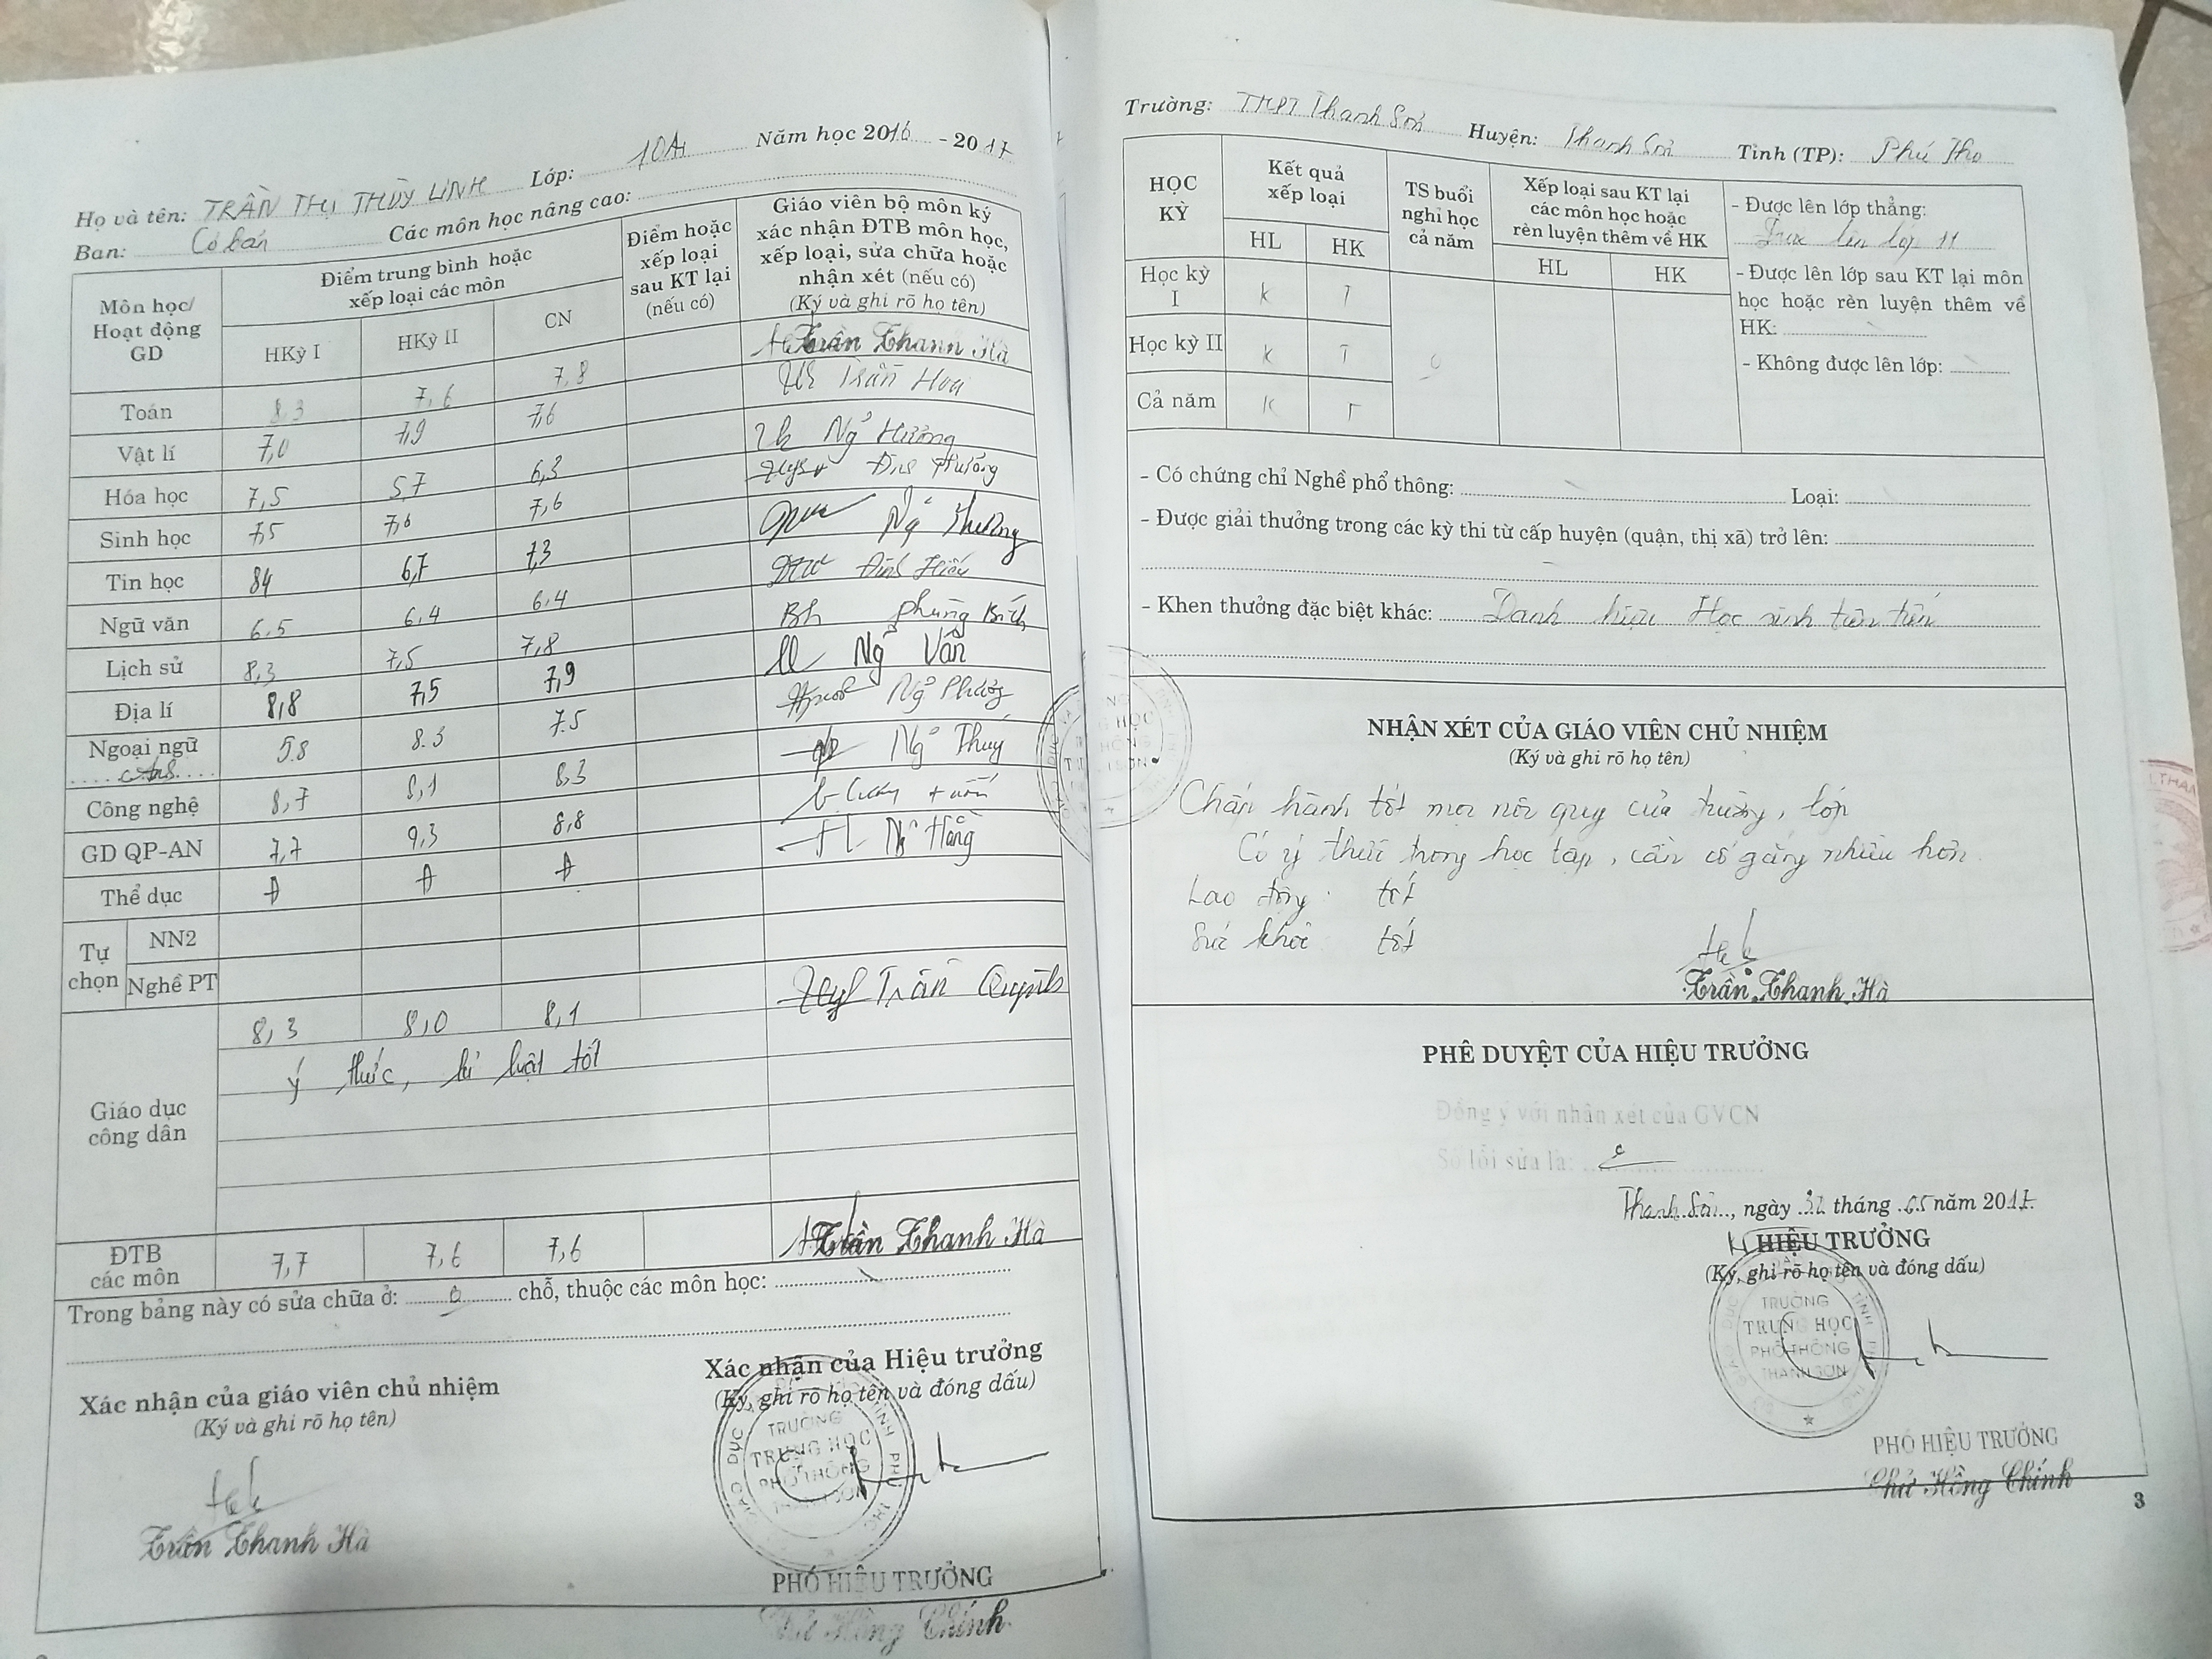 Họ và tên: TRẦN THỊ THÙY LINH Lớp: 10A1 Năm học 2016 - 2017
Ban: Cơ bản Các môn học nâng cao:
Môn học/ Hoạt động GD
Điểm trung bình hoặc xếp loại các môn
HKỳ I HKỳ II CN
Điểm hoặc xếp loại sau KT lại (nếu có)
Giáo viên bộ môn ký xác nhận ĐTB môn học, xếp loại, sửa chữa hoặc nhận xét (nếu có)
(Ký và ghi rõ họ tên)
Toán 8,3 7,6 7,8 Trần Thanh Hà
Vật lí 7,0 7,9 7,6
Hóa học 7,5 5,7 6,3
Sinh học 7,5 7,6 7,6
Tin học 8,4 6,7 7,3
Ngữ văn 6,5 6,4 6,4
Lịch sử 8,3 7,5 7,8
Địa lí 8,8 7,5 7,9
Ngoại ngữ 5.8 8.3 7.5
Công nghệ 8,7 8,1 8,3
GD QP-AN 7,7 9,3 8,8
Thể dục Đ Đ Đ
Tự chọn
NN2
Nghề PT
Giáo dục công dân
8,3 8,0 8,1 Trần Quỳnh
ý thức, kỉ luật tốt
ĐTB các môn 7,7 7,6 7,6 Trần Thanh Hà
Trong bảng này có sửa chữa ở: 0 chỗ, thuộc các môn học:
Xác nhận của giáo viên chủ nhiệm
(Ký và ghi rõ họ tên)
Trần Thanh Hà
Xác nhận của Hiệu trưởng
(Ký, ghi rõ họ tên và đóng dấu)
TRƯỜNG
TRUNG HỌC
PHỔ THÔNG
PHÓ HIỆU TRƯỞNG
Trường: THPT Thanh Sơn Huyện: Thanh Sơn Tỉnh (TP): Phú Thọ
HỌC KỲ
Kết quả xếp loại
HL HK
TS buổi nghỉ học cả năm
Xếp loại sau KT lại các môn học hoặc rèn luyện thêm về HK
HL HK
Học kỳ I K T
Học kỳ II K T
Cả năm K T
- Được lên lớp thẳng:
lên lớp 11
- Được lên lớp sau KT lại môn học hoặc rèn luyện thêm về HK:
- Không được lên lớp:
- Có chứng chỉ Nghề phổ thông: Loại:
- Được giải thưởng trong các kỳ thi từ cấp huyện (quận, thị xã) trở lên:
- Khen thưởng đặc biệt khác: Danh hiệu Học sinh tiên tiến
NHẬN XÉT CỦA GIÁO VIÊN CHỦ NHIỆM
(Ký và ghi rõ họ tên)
Chấp hành tốt mọi nội quy của trường, lớp
Có ý thức trong học tập, cần cố gắng nhiều hơn
Lao động tốt
Sức khỏe tốt
Trần Thanh Hà
PHÊ DUYỆT CỦA HIỆU TRƯỞNG
Đồng ý với nhận xét của GVCN
Số lỗi sửa là:
Thanh Sơn, ngày 31 tháng 05 năm 2017
HIỆU TRƯỞNG
(Ký, ghi rõ họ tên và đóng dấu)
TRƯỜNG
TRUNG HỌC
PHỔ THÔNG
THANH SƠN
PHÓ HIỆU TRƯỞNG
3